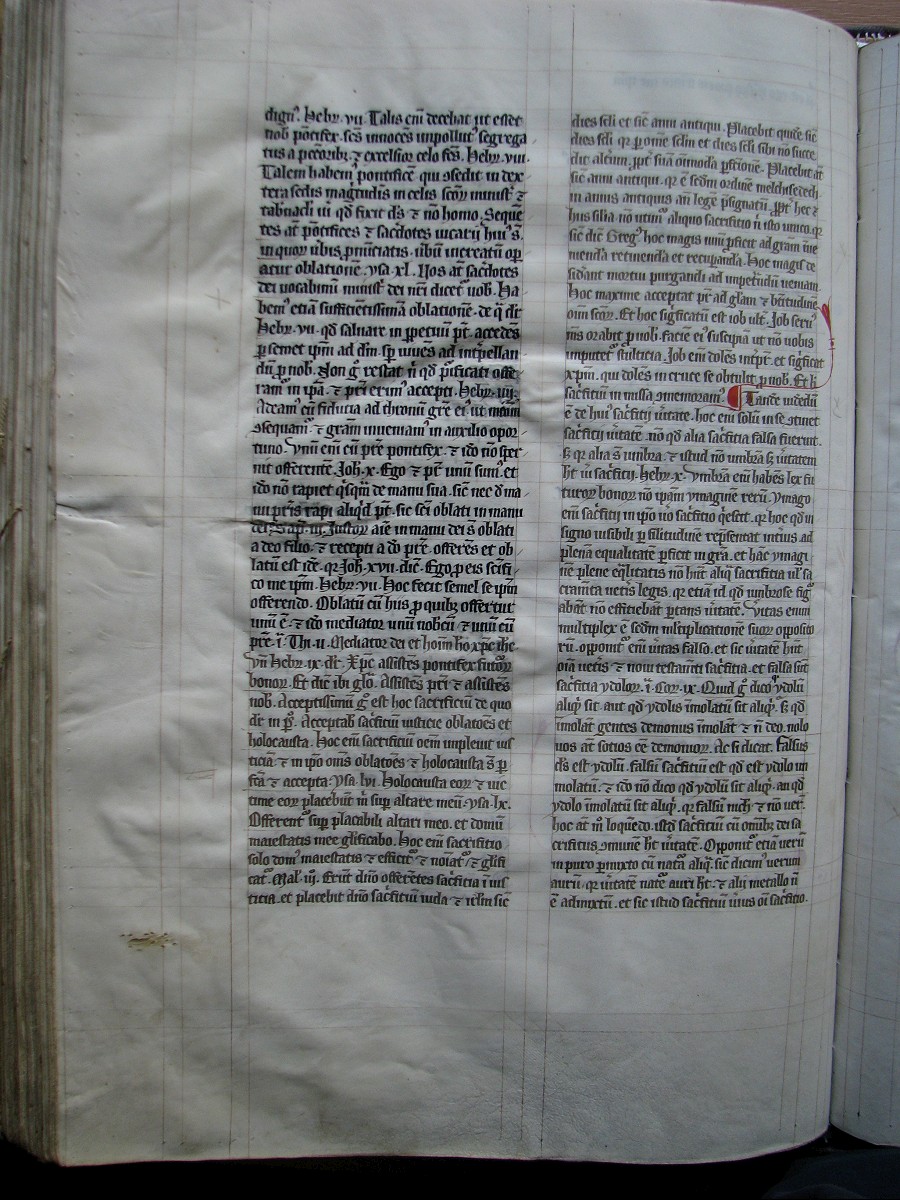 dign᷒. Heb᷒. vii. Talis em̄ decebat ut esset
nob̄ pōtifex. sc̄s innocēs impollut᷒ segrega
tus a pctōribꝫ ⁊ excelsior celo fc̄s. Heb᷒. viii.
Talem habem᷒ pontificē qui ꝯsedit in dex
tera sedis magnitudīs in celis sc̄oꝝ minist᷒ ⁊
tab̄nacli ūi qd̄ fixit dn̄s ⁊ nō homo. Sequē
tes at̄ pōtifices ⁊ sac̄dotes vicarii hui᷒ s̄.
in quoꝝ v̄bis ꝓnūciatis. v̄bū increatū oꝑ
atur oblationē. ysa. xl. Vos at̄ sac̄dotes
dei vocabimī minist̄ dei nr̄i dicet᷒ uob̄. Ha
bem᷒ etiā sufficiētissimā oblationē. de q̄ dr̄
Heb᷒. vii. qd̄ saluare in ꝑpetuū pt̄. accedēs
ꝑ semet ipm̄ ad dm̄. sꝑ uiuēs ad int̄pellan
dū ꝓ nob̄. Non ḡ restat n̄ qd̄ pificati offe
ram᷒ in ipā. ⁊ pr̄i erim᷒ accepti. Heb᷒. iiij.
Adeam᷒ cū fiducia ad thronū gr̄e ei᷒. ut mīam
ꝯsequam᷒. ⁊ gr̄am inueniam᷒ in auxilio opor
tuno. Vnū em̄ cū pr̄e pontifex. ⁊ iđo nō sper
nit offerentē. Joh̄. x. Ego ⁊ pr̄ unū sum᷒. et
iđo nō rapiet q̄sq̄m de manu sua. sic̄ nec đ ma
nu pr̄is rapi aliqd̄ pt̄. sic sc̄i oblati in manu
dei. Sap̄. iij. Justoꝝ aīe in manu dei s̄ oblati
a deo filio. ⁊ recepti a đo pr̄e. offerēs et ob
latū est idē. qꝛ Joh̄. xvii. dic̄. Ego ꝓ eis sc̄ifi
co me ipm̄. Heb᷒. vii. Hoc fecit semel se ip̄m
offerendo. Oblatū cū hiis ꝓ quibꝫ offertur
unū ē. ⁊ iđo mediator unū nobcū ⁊ unū cū
pr̄e. i. Th. ii. Mediator dei et hoīm hō xp̄c ihc̄.
Vn̄ Heb᷒. ix. dr̄. Xp̄c assistēs pontifex futoꝝ
bonoꝝ. Et dic̄ ibi glō. Assistēs pr̄i ⁊ assistēs
nob̄. Acceptissimū ḡ est hoc sacrificiū de quo
dr̄ in p̄s. Acceptab̄ sac̄ficiū iusticie oblatōes et
holocausta. Hoc em̄ sacrificiū oēm impleuit ius
ticiā. ⁊ in ipō om̄s oblatōes ⁊ holocausta s̄ ꝑ
fc̄a ⁊ accepta. ysa. lvi. Holocausta eoꝝ ⁊ uic
time eoꝝ placebūt m̄ suꝑ altare meū. ysa. lx.
Offerent᷒ suꝑ placabili altari meo. et domū
maiestatis mee glificabo. Hoc em̄ sacrificio
solo dom᷒ maiestatis ⁊ efficit᷒ ⁊ noīat᷒ ⁊ glifi
cat᷒. Mal̄. iij. Erūt dn̄o offerētes sac̄ficia ī ius
ticia. et placebit dn̄o sac̄ficiū iuda ⁊ irlm̄ sic̄
dies sc̄li et sic̄ anni antiqui. Placebit quidē sic̄
dies sc̄li qꝛ ꝑ om̄e sclm̄ et dies sc̄li sibi nō succe
dit altem̄. ꝓpt̄ suā om̄imodā ꝑfcīonē. Placebit at̄
sic̄ anni antiqui. qꝛ ē sedm̄ ordinē melchisedech
in annis antiquis an̄ legē p̄signatū. ꝓpt̄ hec ⁊
hiis silia nō utim᷒ aliquo sacrificio n̄ isto unico. qꝛ
sic̄ dic̄ Greg᷒. hoc magis unū ꝓficit ad gr̄am īue
niendā retinendā et recuꝑandā. Hoc magis de
siđant mortui purgandi ad inpetrādū ueniam
Hoc maxime acceptat pr̄ ad glam̄ ⁊ btitudinē
oīm sc̄oꝝ. Et hoc significatū est iob ult̄. Job seru᷒
m̄s orabit ꝓ nob̄. faciē ei᷒ suscipiā ut nō uobis
imputet᷒ stulticia. Job em̄ dolēs int̄pt̄. et significat
xp̄m. qui dolēs in cruce se obtulit ꝓ nob̄. Et h̄
sac̄ficiū in missa ꝯmemoram᷒. Tandē uidēdū
ē de hui᷒ sac̄ficij ūitate. hoc em̄ solū in se ꝯtinet
sac̄ficij ūitatē. nō qd̄ alia sac̄ficia falsa fuerint.
sꝫ qꝛ alia s̄ umbra. ⁊ istud nō umbrā sꝫ ūitatem
ht̄ ūi sac̄ficij. Heb᷒. x. Vmbrā em̄ habēs lex fu
turoꝝ bonoꝝ nō ipam̄ ymaginē rerū. Ymago
em̄ sac̄ficij in ipō nō sac̄ficio q̄escit. qꝛ hoc qd̄ in
signo uisibili ꝑ silitudinē rep̄sentat intius ad
plenā equalitatē ꝑficit in gr̄a. et hāc ymagi
nē plene eq̄litatis nō hn̄t aliq̄ sacrificia ul̄ sa
cram̄ta uet̄is legis. qꝛ etiā id qd̄ umbrose fig᷒
abāt nō efficiebāt ꝑtans ūitatē. Vitas enim
multiplex ē sedm̄ mltiplicationē suoꝝ opposito
rū. Opponit᷒ em̄ ūitas falso. et sic ūitatē hn̄t
oīa uet̄is ⁊ noui testam̄ti sac̄ficia. et falsa sūt
sac̄ficia ydoloꝝ. i. Cor. ix. Quid ḡ dico. ydolū
aliqͥ sit. aut qd̄ ydolis īmolatū sit aliqͥ. sꝫ qd̄
īmolāt gentes demoniis īmolāt ⁊ n̄ deo. nolo
uos at̄ sotios ēē demonioꝝ. Ac si dicat. Falsus
ds̄ est ydolū. falsū sac̄ficiū est qd̄ est ydolo im
molatū. ⁊ iđo nō dico qd̄ ydolū sit aliqͥ. an qd̄
ydolo īmolatū sit aliqͥ. qꝛ falsū nich̄ ⁊ nō uer̄.
hoc at̄ m̊ loquēdo. istđ sac̄ficiū cū om̄ibꝫ dei sa
crificiis ꝯmunē ht̄ ūitatē. Opponit᷒ etiā uerū
in puro ꝑmixto cū nat̄a aliq̄. sic̄ dicim᷒ uerum
aurū. qꝛ ūitatē nat̄e auri ht̄. ⁊ alij metallo n̄
ē admixtū. et sic istud sac̄ficiū ūius oī sac̄ficio.